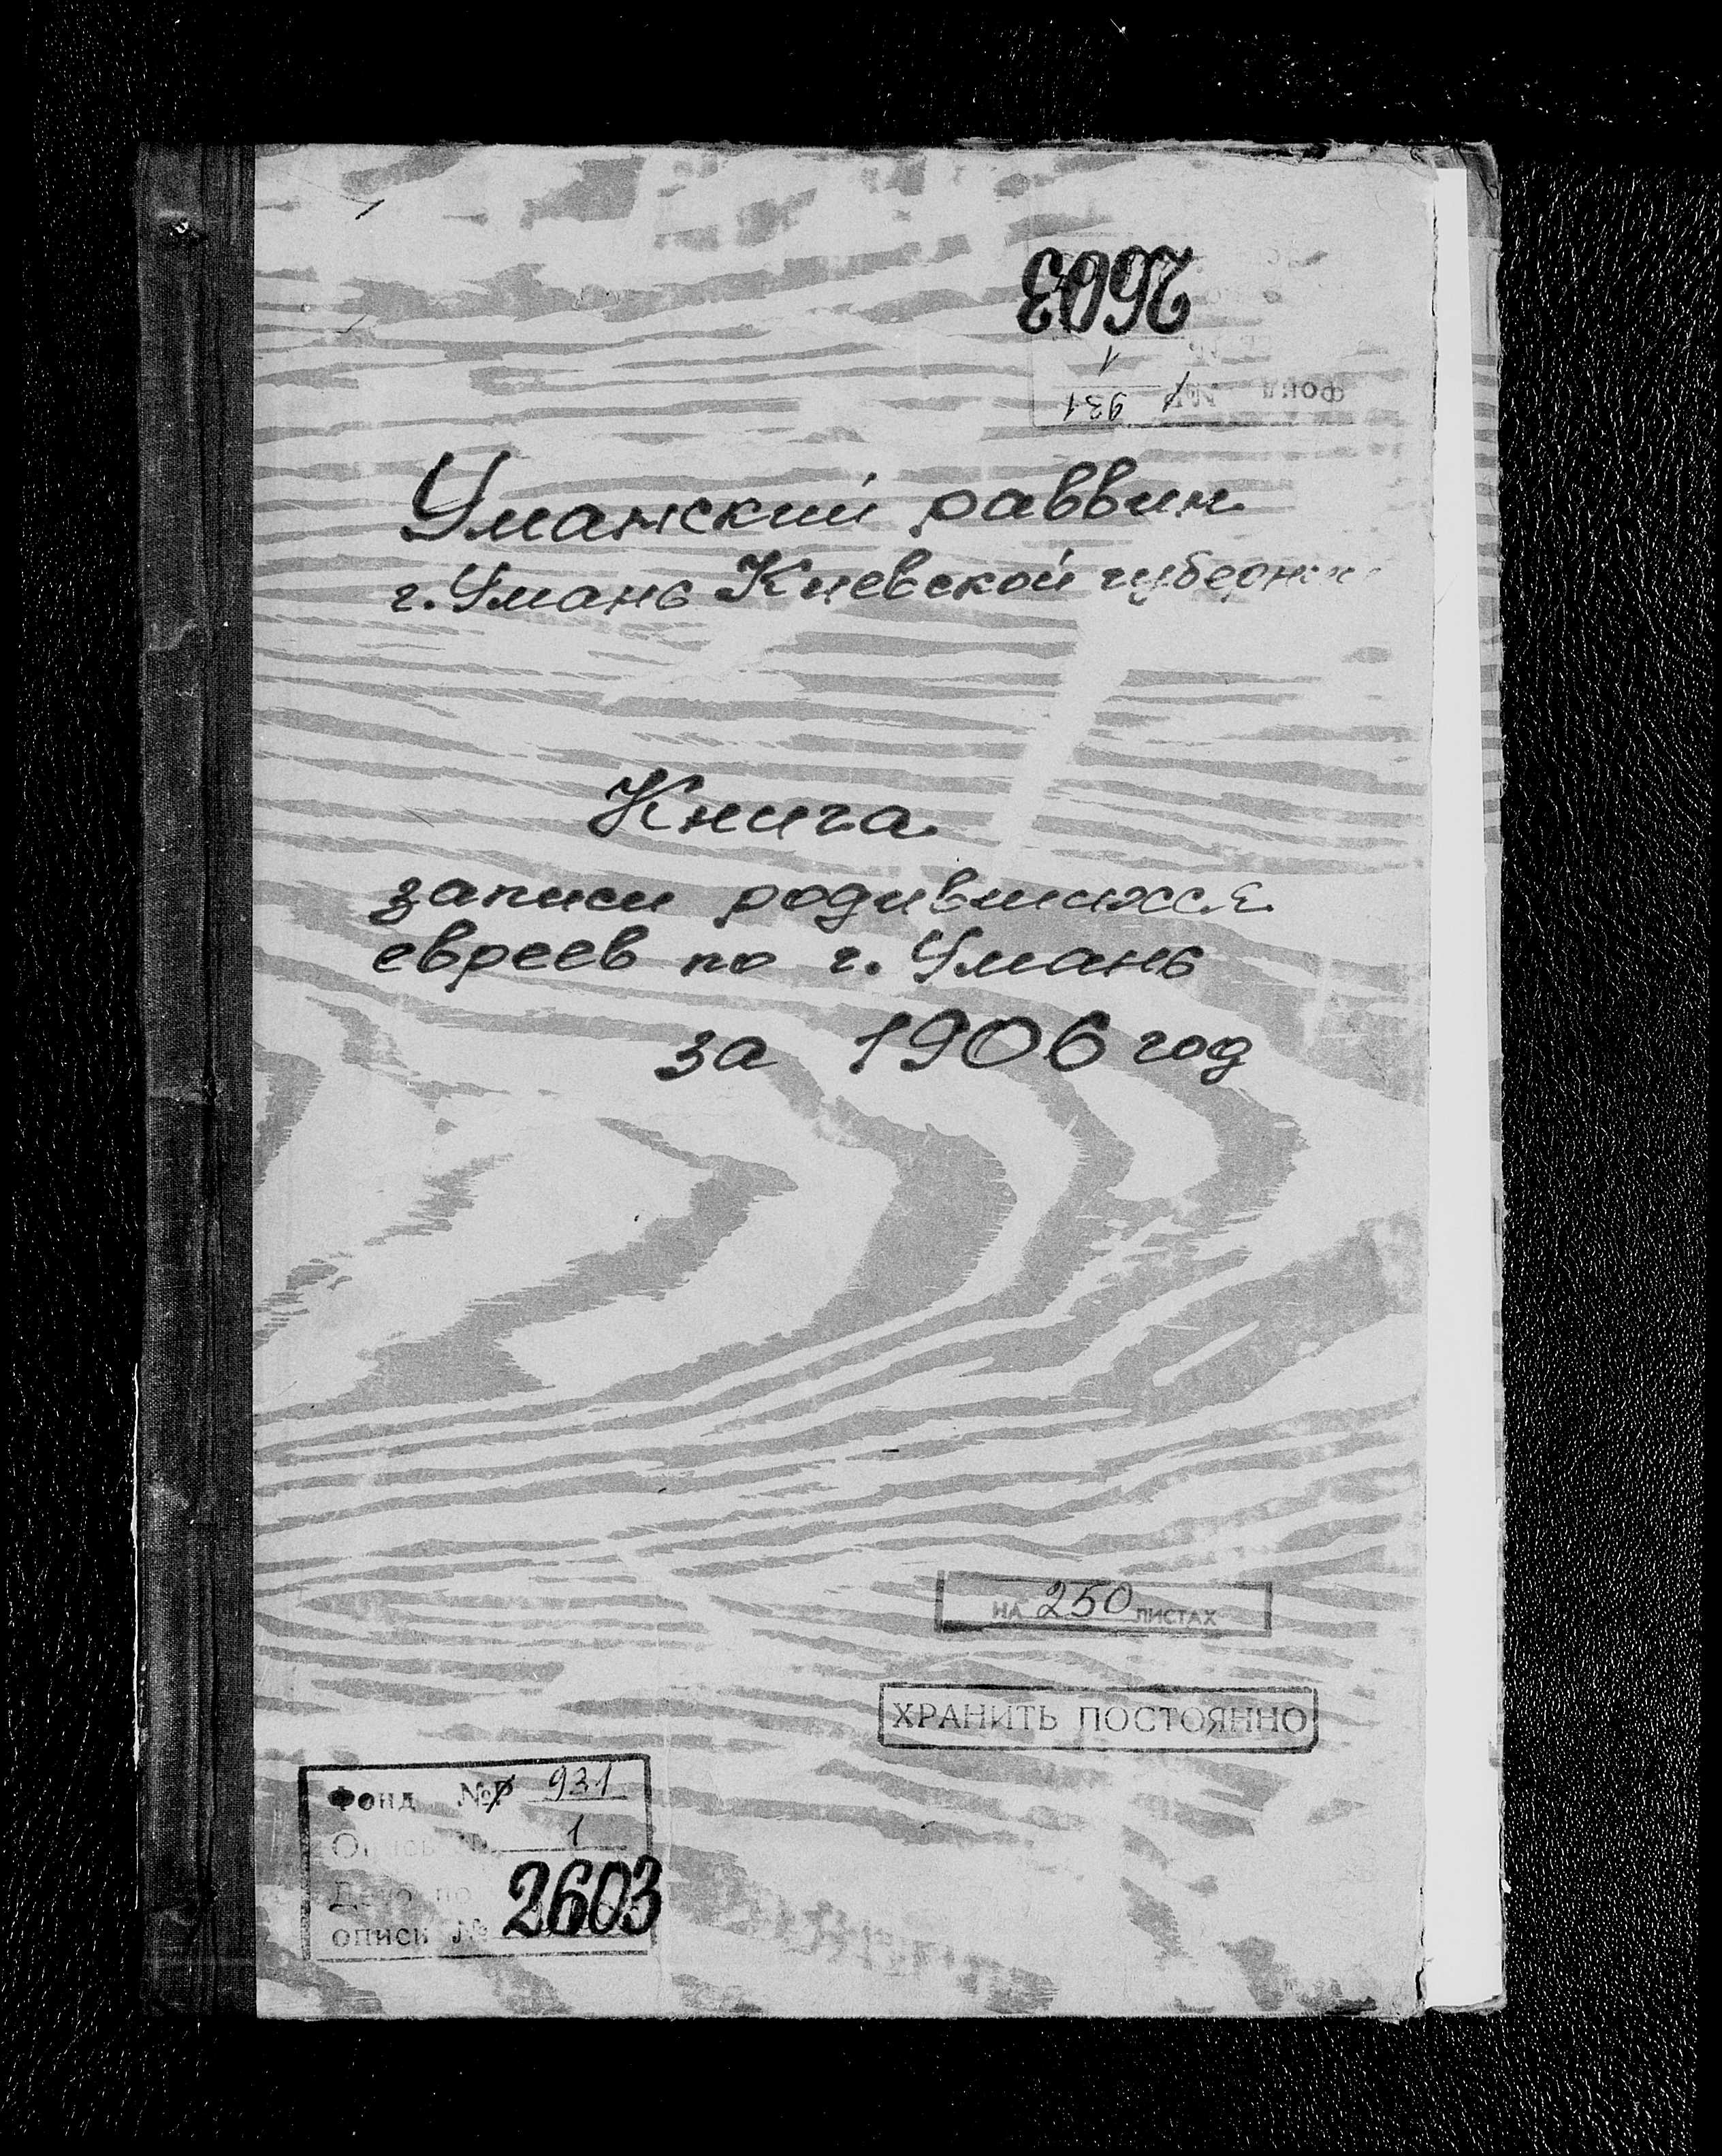 2603
1
Фонд № 931
Уманский раввин
г. Умань Киевской губернии
Книга
записи родившихся
евреев по г. Умань
за 1906 год
НА 250 ЛИСТАХ
ХРАНИТЬ ПОСТОЯННО
Фонд №Р 931
Опись № 1
Дело по
описи № 2603